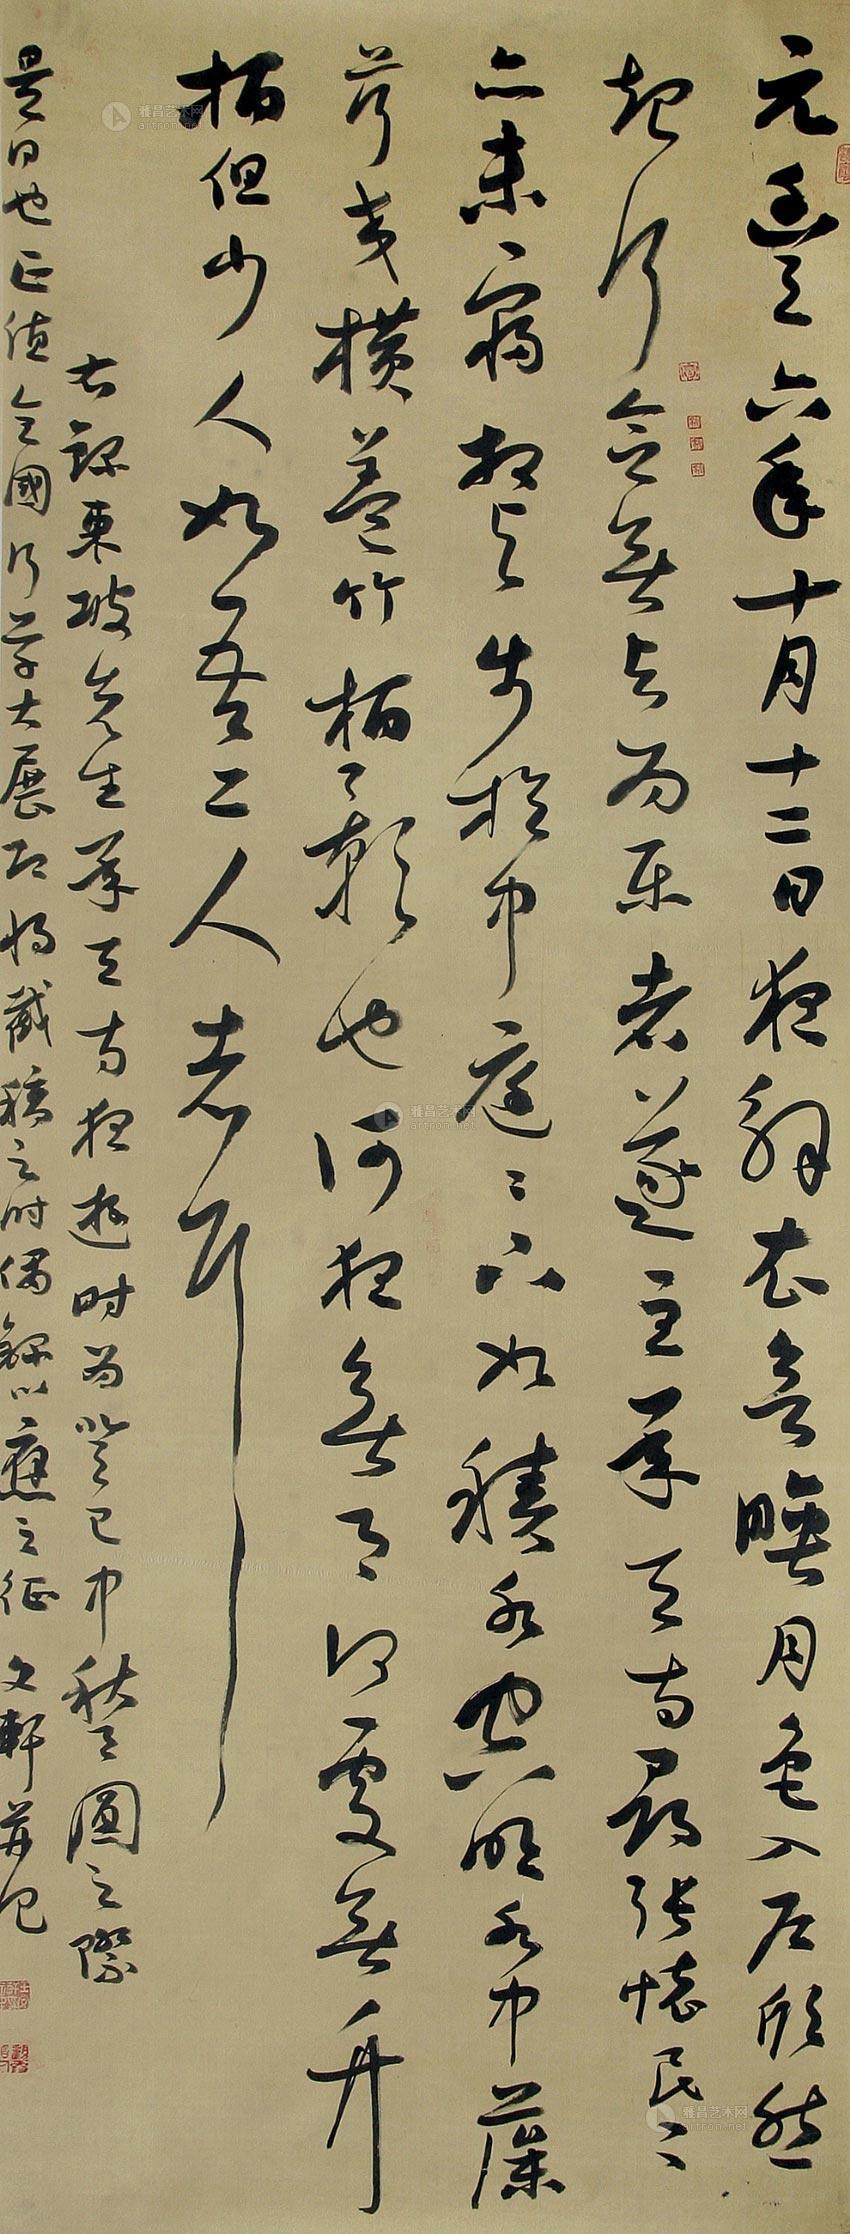 元豐六年十月十二日夜解衣欲睡月色入戶欣然
起行念無与为樂者遂至承天寺尋張懷民〻
亦未寢相与步於中庭〻下如積水空明水中藻
荇交橫蓋竹柏〻影也何夜無月〻何處無竹
柏但少人如吾二人者耳
右錄東坡先生承天寺夜遊时为癸巳中秋月圓之際
是日也正值全國行草大展即将截稿之时偶錄以應之征 文軒并记
雅昌艺术网
artron.net